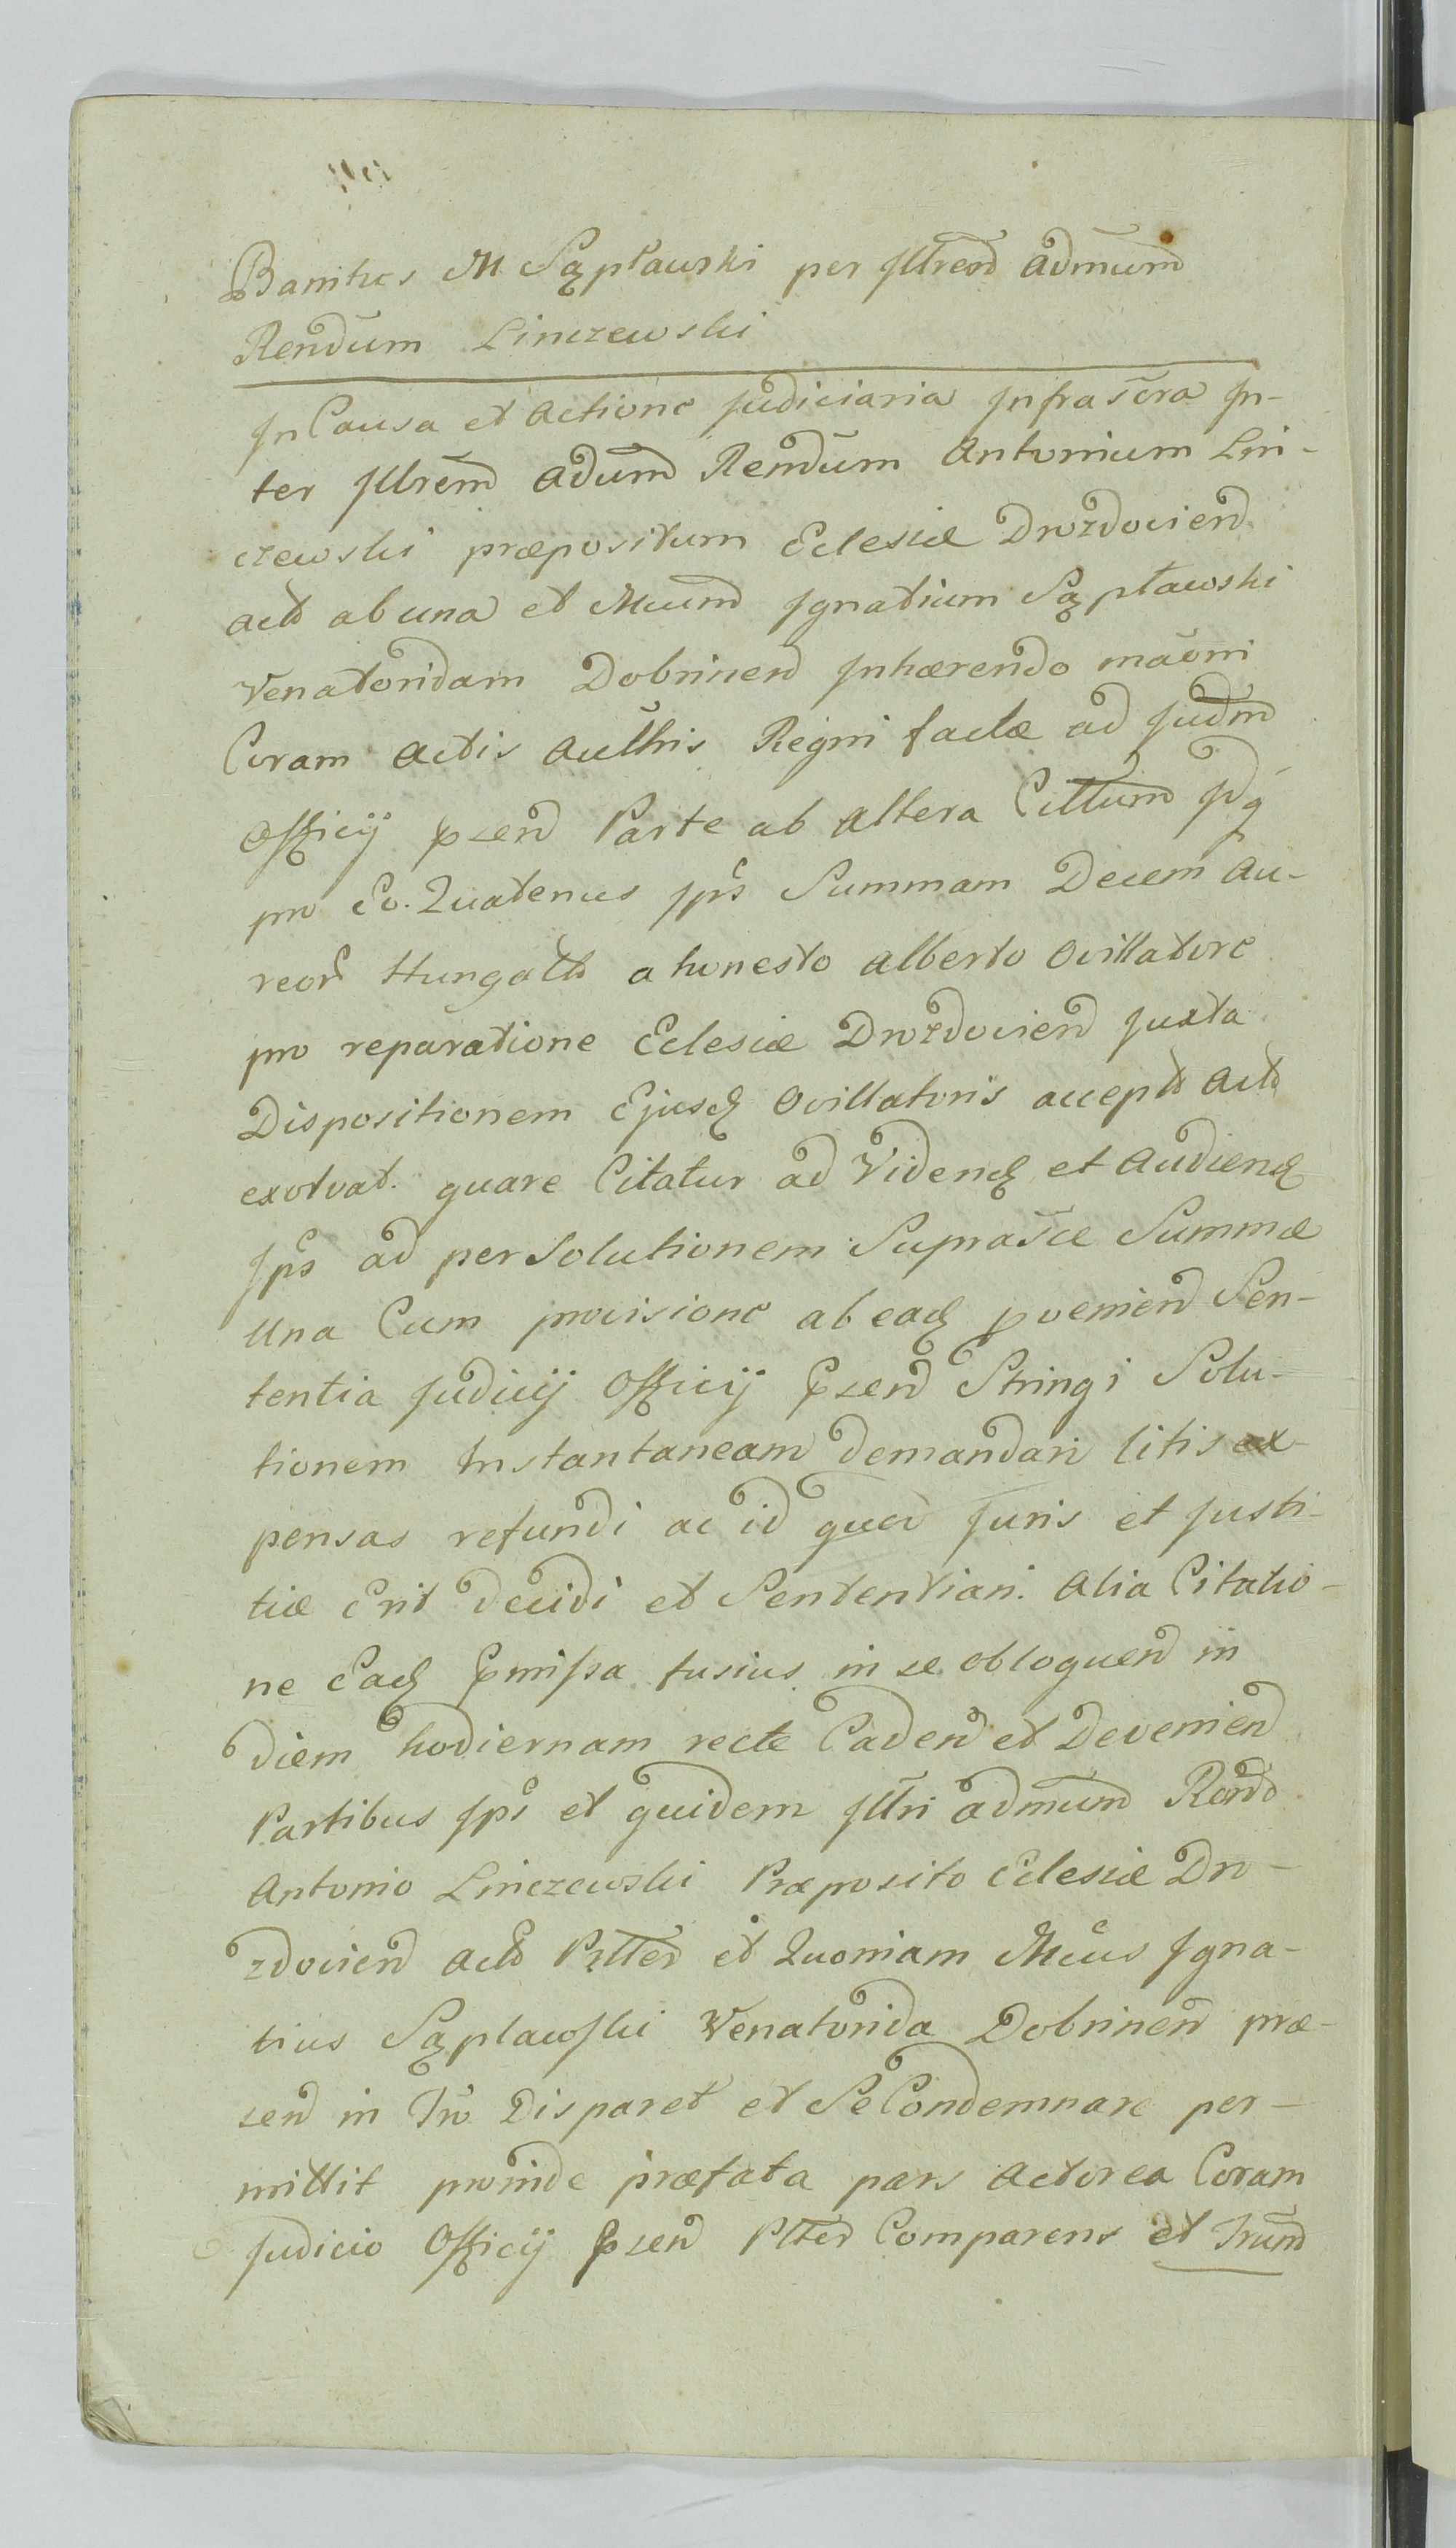 Banitus M Sąpławski per Jllrem admum
Rendum Linczewski
Jn Causa et Actione Judiciaria Jnfrascra Jn-
ter Jllrem Adum Rendum Antonium Lin-
czewski præpositum Eclesiæ Drozdovien
act ab una et Mcum Jgnatium Sąpławski
Venatoridam Dobrinen Jnhærendo maoni
Coram Actis Aucthis Regni factæ ad Judm
Officij pzen Parte ab Altera Cittum
pro Eo. Quatenus Jps Summam Decem Au-
reor Hungall a honesto Alberto Ovillatore
pro reparatione Eclesiæ Drozdovien Juxta
Dispositionem Ejusq Ovillatoris accept Act
exolvat. quare Citatur ad Videnq et Audienq
Jps ad persolutionem Suprascæ Summæ
Una Cum provisione ab eaq pvenien Sen-
tentia Judicij Officij pzen Stringi Solu-
tionem Jnstantaneam demandari litis ex-
pensas refundi ac id quod Juris et Justi-
tiæ Erit decidi et Sententiari. Alia Citatio-
ne Eaq pmissa fusius in se obloquen in
diem hodiernam recte Caden et Devenien
Partibus Jps et quidem Jllri admum Rendo
Antonio Linczewski Præposito Eclesiæ Dro-
zdovien act Przlter et Quoniam Mcus Jgna-
tius Sąplawski Venatorida Dobrinen præ-
sen in Tro Disparet et Se Condemnare per-
mittit proinde præfata pars Actorea Coram
Judicio Officij pzen Plter Comparens et Trum